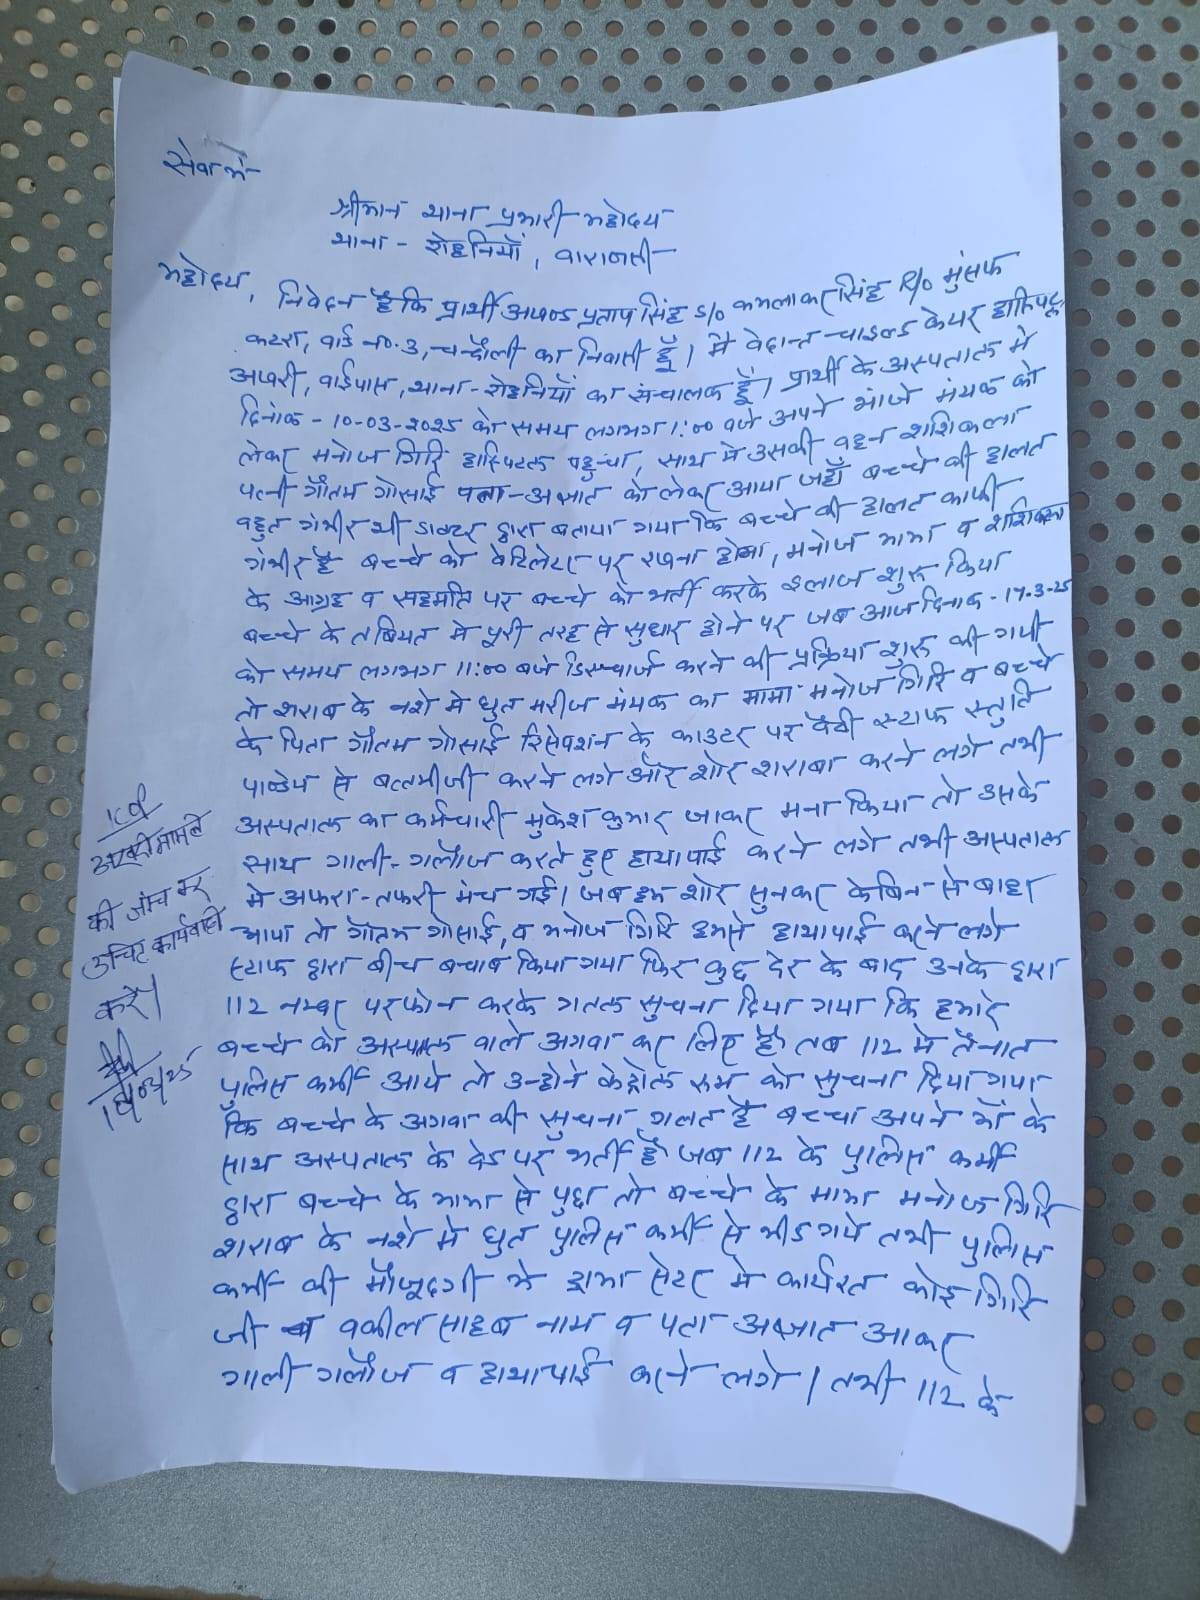 सेवा मे-
श्रीमान थाना प्रभारी महोदय
थाना - रोहनियाँ, वाराणसी
महोदय,
निवेदन है कि प्रार्थी अखण्ड प्रताप सिंह S/o कमलाकर सिंह R/o मुंसफ
कटरा, वार्ड no. 3, चन्दौली का निवासी हूँ। मै वेदान्त चाइल्ड केयर हास्पिटल
अखरी, वाईपास, थाना - रोहनियाँ का संचालक हूँ। प्रार्थी के अस्पताल मे
दिनांक - 10-03-2025 को समय लगभग 1:00 वजे अपने भांजे मंयक को
लेकर मनोज गिरि हास्पिटल पहुन्चा, साथ मे उसकी वहन शशिकला
पत्नी गौतम गोसाई पता - अज्ञात को लेकर आया जहाँ बच्चे की हालत
वहुत गंभीर थी डाक्टर द्वारा बताया गया कि बच्चे की हालत काफी
गंभीर है बच्चे को वेटिलेटर पर रखना होगा, मनोज मामा व शशिकला
के आग्रह व सहमति पर बच्चे को भर्ती करके इलाज शुरू किया
बच्चे के तबियत मे पूरी तरह से सुधार होने पर जब आज दिनांक - 17-3-25
को समय लगभग 11:00 बजे डिस्चार्ज करने की प्रक्रिया शुरू की गयी
तो शराब के नशे मे धुत मरीज मंयक का मामा मनोज गिरि व बच्चे
के पिता गौतम गोसाई रिसेपशन के काउटर पर वैठी स्टाफ स्तुति
पाण्डेय से बत्तमीजी करने लगे और शोर शराबा करने लगे तभी
अस्पताल का कर्मचारी मुकेश कुमार जाकर मना किया तो उसके
साथ गाली-गलौज करते हुए हाथापाई करने लगे तभी अस्पताल
मे अफरा-तफरी मच गई। जब हम शोर सुनकर केबिन से बाहर
आया तो गौतम गोसाई, व मनोज गिरि हमसे हाथापाई करने लगे
स्टाफ द्वारा बीच बचाव किया गया फिर कुछ देर के बाद उनके द्वारा
112 नम्बर पर फोन करके गलत सुचना दिया गया कि हमारे
बच्चे को अस्पताल वाले अगवा कर लिए है तब 112 मे तैनात
पुलिस कर्मी आये तो उन्होने कंट्रोल रूम को सुचना दिया गया
कि बच्चे के अगवा की सुचना गलत है बच्चा अपने माँ के
साथ अस्पताल के वेड पर भर्ती है जब 112 के पुलिस कर्मी
द्वारा बच्चे के मामा से पुछा तो बच्चे के मामा मनोज गिरि
शराब के नशे मे धुत पुलिस कर्मी से भीड गये तभी पुलिस
कर्मी की मौजूदगी मे ट्रामा सेंटर मे कार्यरत कोई गिरि
जी व वकील साहब नाम व पता अज्ञात आकर
गाली गलौज व हाथापाई करने लगे। तभी 112 के
मामले
की जांच कर
उचित कार्यवाही
करें।